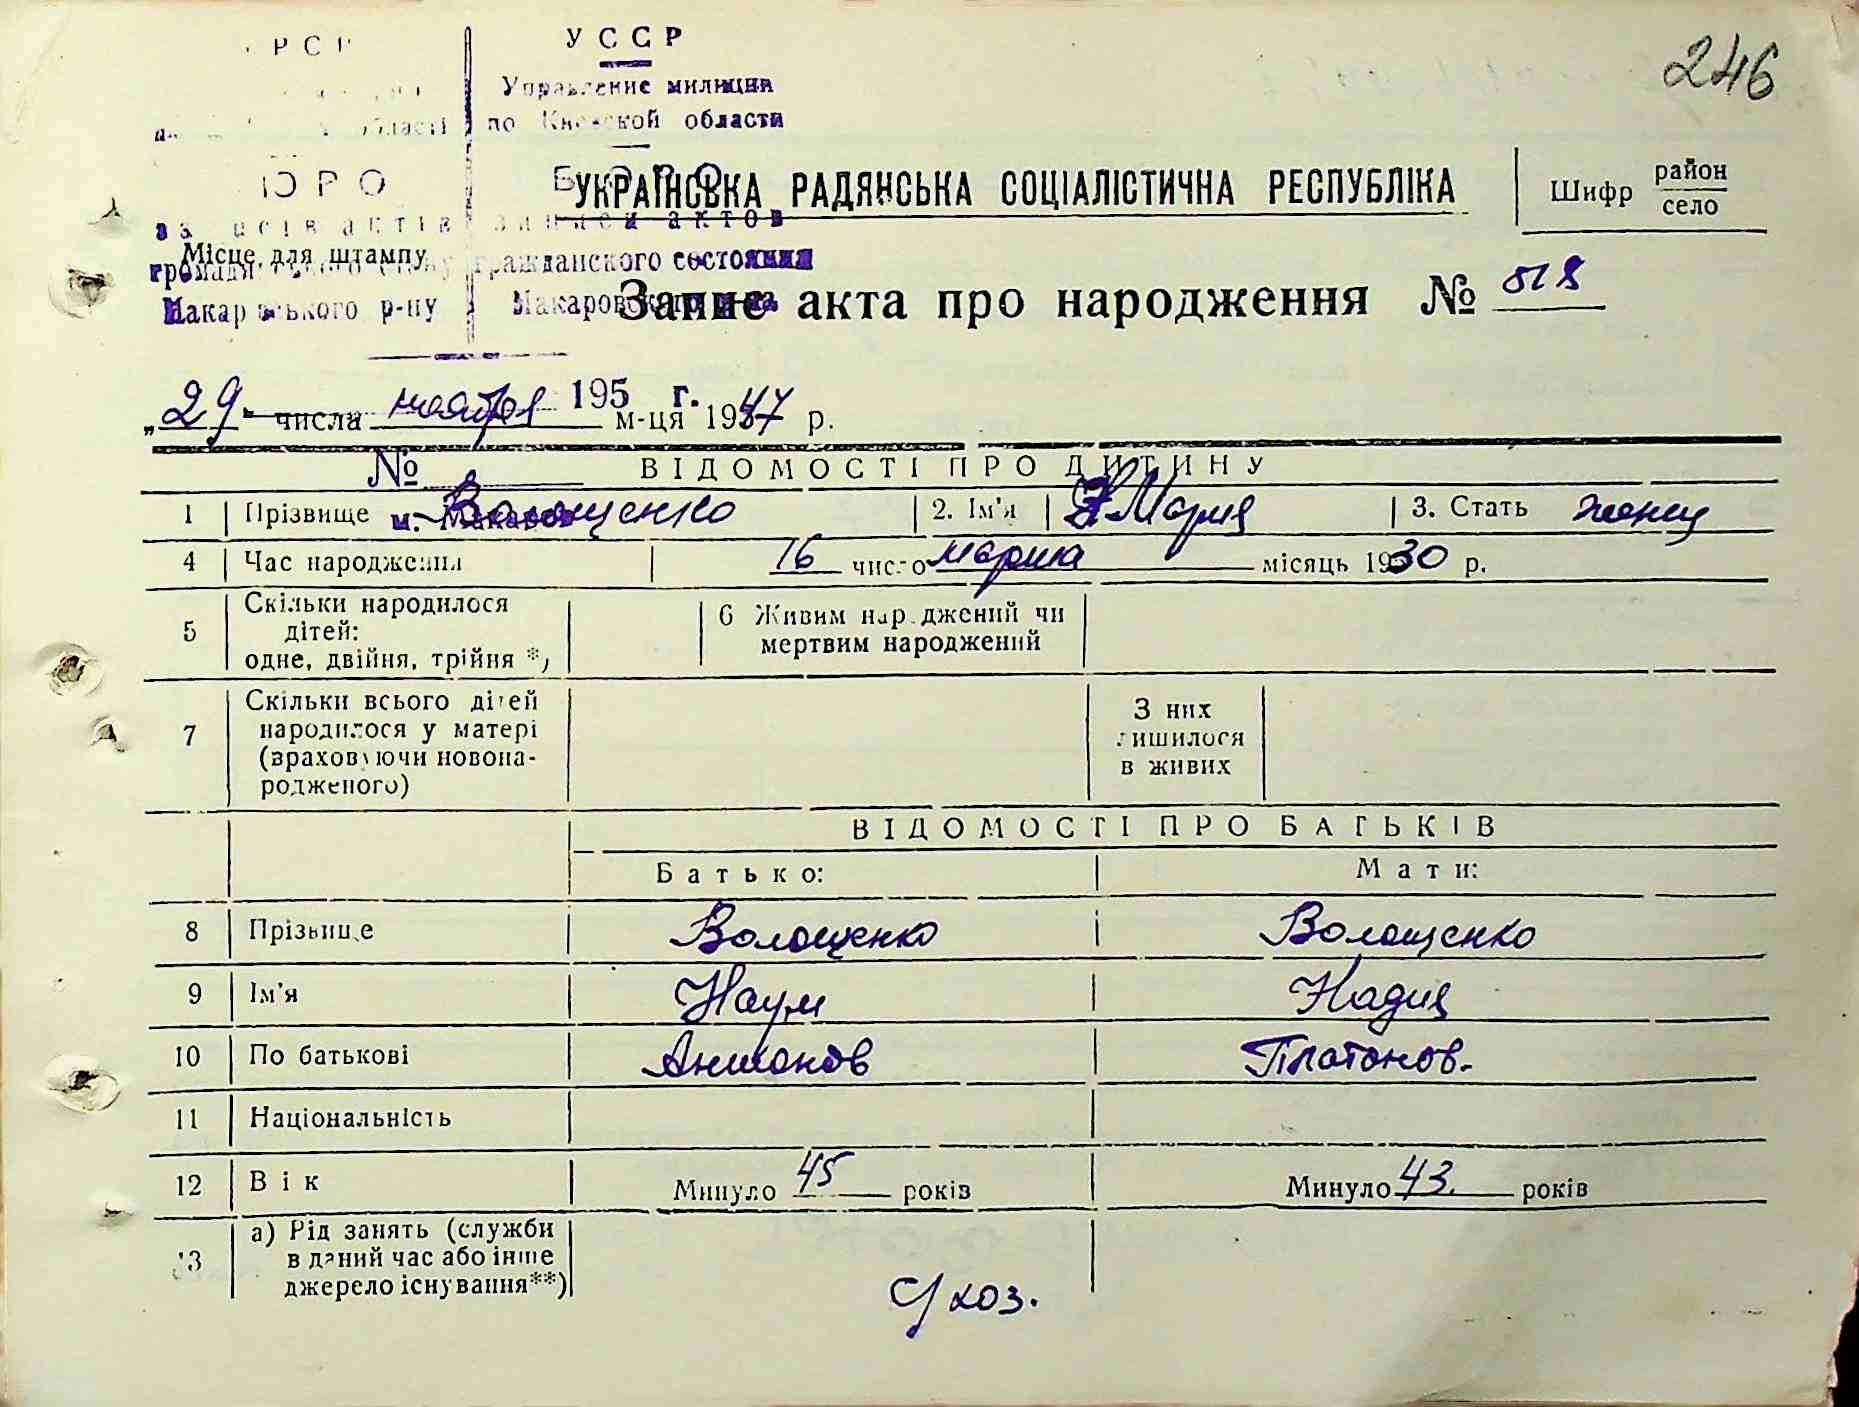 246
УССР
Управление милиции
области по Киевской области
БЮРО
УКРАЇНСЬКА РАДЯНСЬКА СОЦІАЛІСТИЧНА РЕСПУБЛІКА
Шифр район
село
записи актов
Місце для штампу
гражданского состояния
Макарівського р-ну
Запис акта про народження № 518
195 г.
„29" числа ноября м-ця 1947 р.
№
ВІДОМОСТІ ПРО ДИТИНУ
м. Макаров
1 Прізвище Волощенко 2. Ім'я Мария 3. Стать женщ
4 Час народження 16 число марта місяць 1930 р.
5 Скільки народилося дітей: одне, двійня, трійня *)
6 Живим народжений чи мертвим народжений
7 Скільки всього дітей народилося у матері (враховуючи новонародженого)
З них лишилося в живих
ВІДОМОСТІ ПРО БАТЬКІВ
Батько: Мати:
8 Прізвище Волощенко Волощенко
9 Ім'я Наум Надия
10 По батькові Антонов Платонов.
11 Національність
12 Вік Минуло 45 років Минуло 43. років
13 а) Рід занять (служби в даний час або інше джерело існування**)
С/хоз.